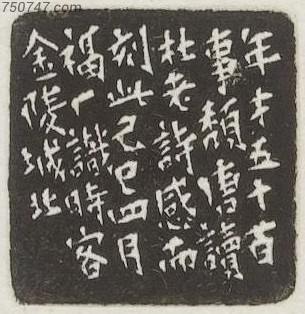 750747.com
年才五十百
事頹唐讀
杜老詩感而
刻此己巳四月
福厂識時客
金陵城北